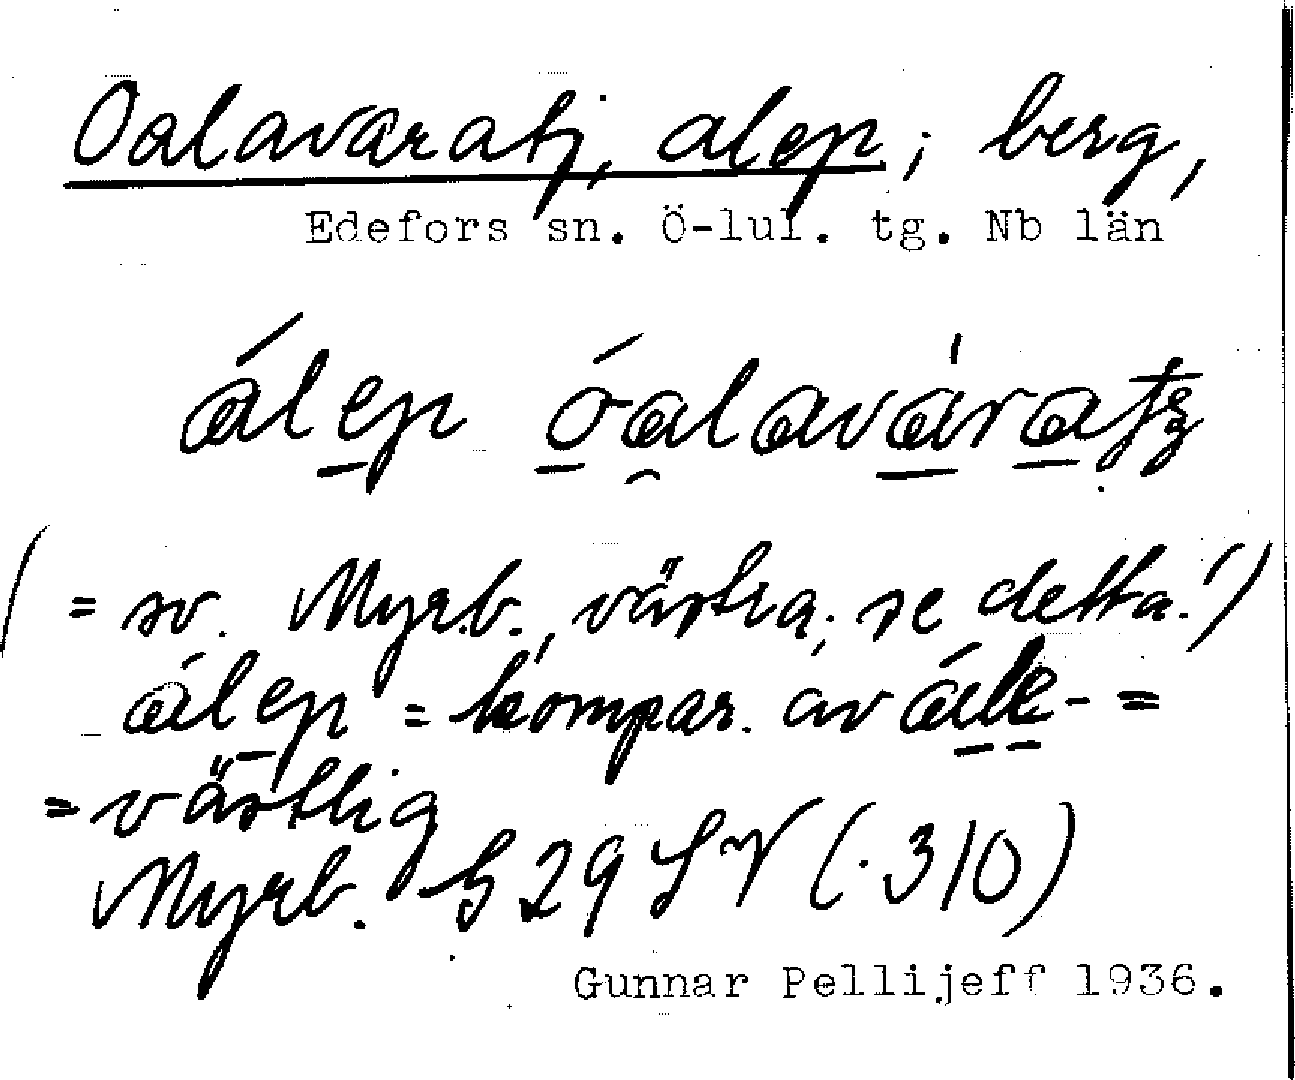 Oalavaratj, alep; berg,
Edefors sn. Ö-lul. tg. Nb län
álep óalaváratj
(= sv. Myrb., västra; se detta!)
álep = kompar. av álle- =
= västlig
Myrb. 29 SV (310)
Gunnar Pellijeff 1936.